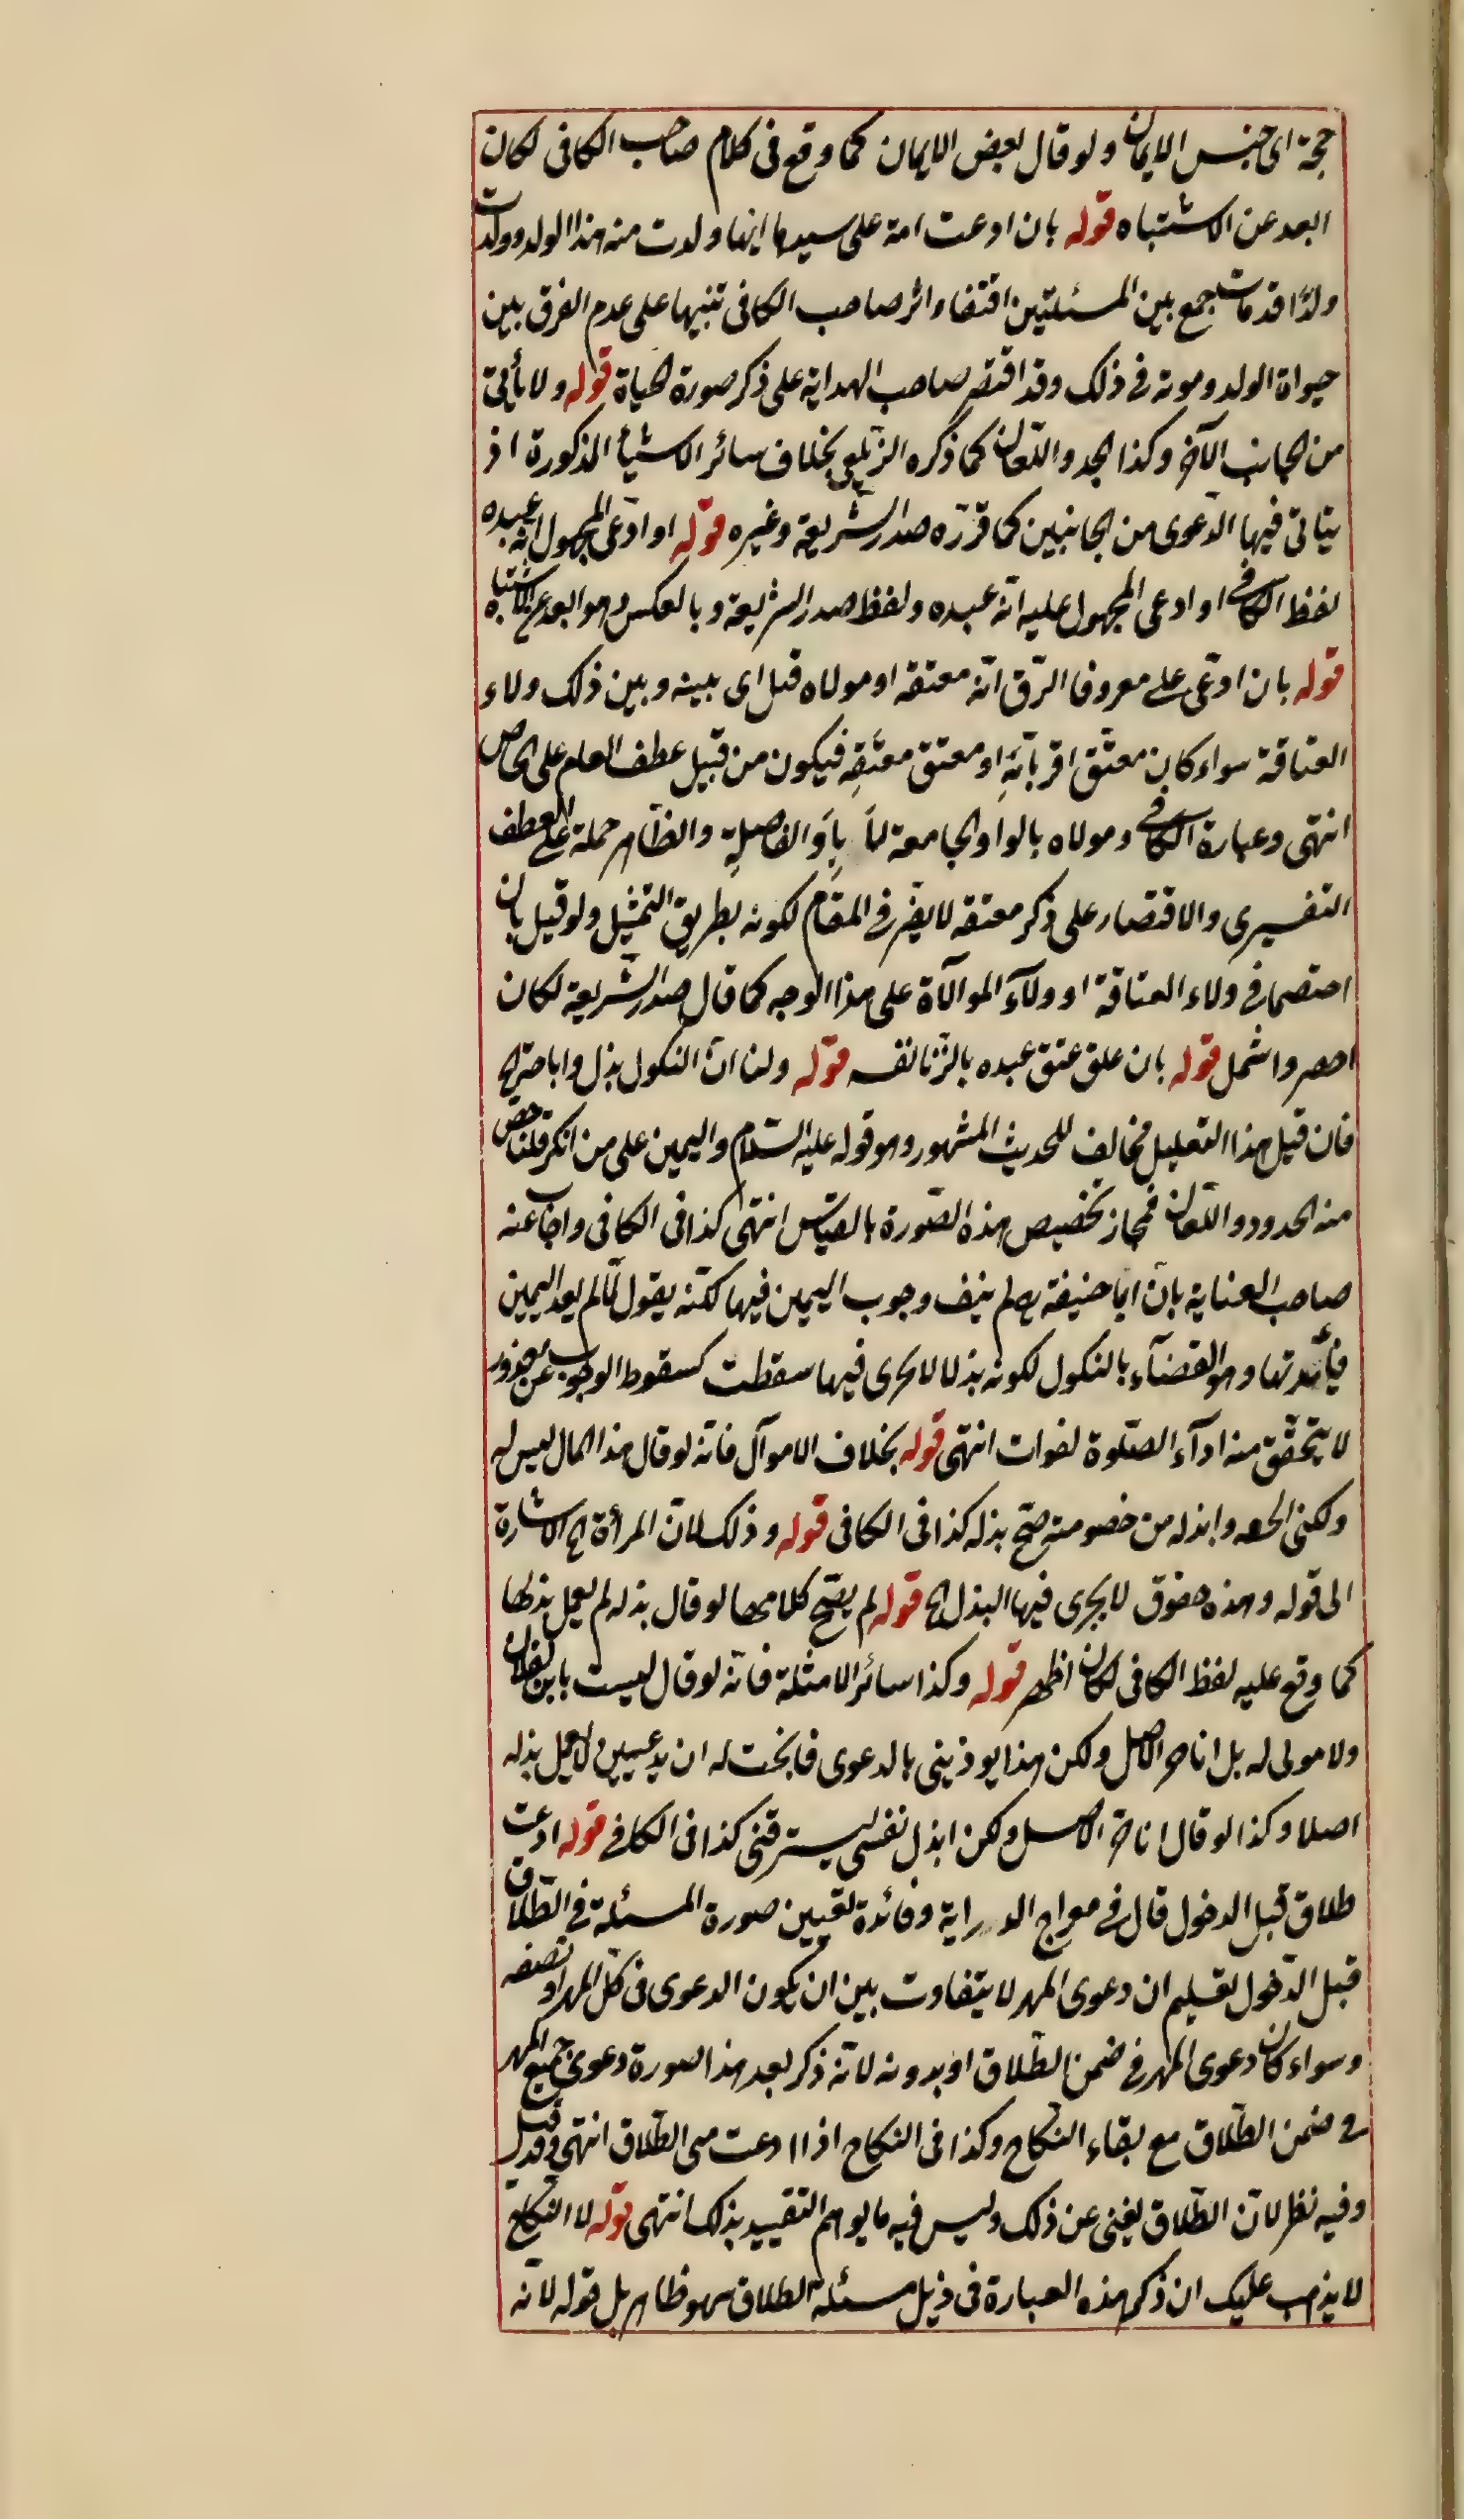 حجة اى جنس الايمان ولو قال بعض الايمان كما وقع فى كلام صاحب الكافى لكان
ابعد عن الاشتباه قوله بان ادعت امة على سيدها انها ولدت منه هذا الولد وولدت
ولدا قد مات جمع بين المسئلتين اقتفاء اثر صاحب الكافى تنبيها على عدم الفرق بين
حيوة الولد وموته فى ذلك وقد اقتصر صاحب الهداية على ذكر صورة الحياة قوله ولا يأتى
من الجانب الآخر وكذا الحد واللعان كما ذكره الزيلعى بخلاف سائر الاشياء المذكورة اذ
يتأتى فيها الدعوى من الجانبين كما قرره صدر الشريعة وغيره قوله او ادعى المجهول انه عبده
لفظ الكافى او ادعى المجهول عليه انه عبده ولفظ صدر الشريعة وبالعكس وهو ابعد عن الاشتباه
قوله بان ادعى على معروف الرق انه معتقه او مولاه قيل اى بينه وبين ذلك ولاء
العتاقة سواء كان معتق اقربائه او معتق معتقه فيكون من قبيل عطف العام على الخاص
انتهى وعبارة الكافى ومولاه بالواو الجامعة لا باو الفاصلة والظاهر حمله على العطف
التفسيرى والاقتصار على ذكر معتقه لا يضر فى المقام لكونه بطريق التمثيل ولو قيل بان
اختصما فى ولاء العتاقة او ولآء الموالآة على هذا الوجه كما قال صدر الشريعة لكان
احصر واشمل قوله بان علق عتق عبده بالزنا نفسه قوله ولنا ان النكول بذل واباحة الخ
فان قيل هذا التعليل مخالف للحديث المشهور وهو قوله عليه السلام واليمين على من انكر قلنا خص
منه الحدود واللعان فجاز تخصيص هذه الصورة بالقياس انتهى كذا فى الكافى واجاب عنه
صاحب العناية بان ابا حنيفة رح لم ينف وجوب اليمين فيها لكنه يقول لما لم يفد اليمين
فائدتها وهو القضآء بالنكول لكونه بذلا لا يجرى فيها سقطت كسقوط الوجوب عن معذور
لا يتحقق منه ادآء الصلوة لفوات انتهى قوله بخلاف الاموآل فانه لو قال هذا المال ليس له
ولكنى وابذله من خصومته صح بذله كذا فى الكافى قوله وذلك لان المرأة الخ الاشارة
الى قوله وهذه حقوق لا يجرى فيها البذل الخ قوله لم يصح كلامها لو قال بذله لم يعمل بذلها
كما وقع عليه لفظ الكافى لكان اظهر قوله وكذا سائر الامثلة فانه لو قال ليست بابن لفلان
ولا مولى له بل انا حر الاصل ولكن هذا يوذينى بالدعوى فابحت له ان يدعيين لا يعمل بذله
اصلا وكذا لو قال انا حر الاصل ولكن ابذل نفسى ليسترقنى كذا فى الكافى قوله ادعت
طلاق قبل الدخول قال فى معراج الدراية وفائدة تعيين صورة المسئلة فى الطلاق
قبل الدخول تعليم ان دعوى المهر لا يتفاوت بين ان يكون الدعوى فى كل المهر او نصفه
وسواء كان دعوى المهر فى ضمن الطلاق او بدونه لانه ذكر بعد هذا الصورة دعوى جميع المهر
فى ضمن الطلاق مع بقاء النكاح وكذا فى النكاح اذا ادعت هى الطلاق انتهى وقد قيل
وفيه نظر لان الطلاق يغنى عن ذلك وليس فيه ما يوهم التقييد بذلك انتهى قوله لا النكاح
لا يذهب عليك ان ذكر هذه العبارة فى ذيل مسئلة الطلاق سهو ظاهر بل قوله لانه